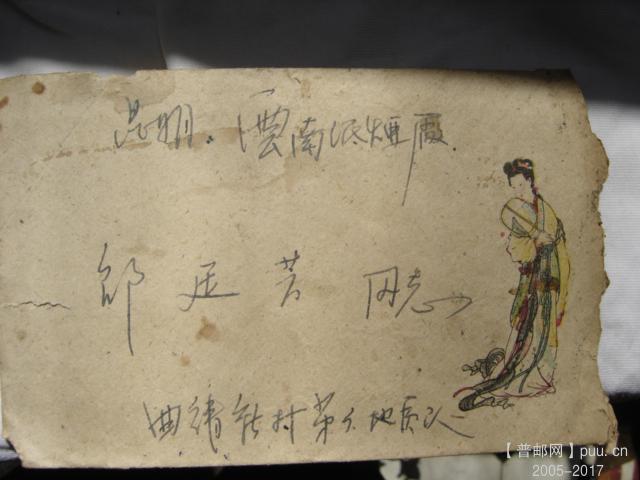 昆明. 雲南紙烟厰
邹廷芳 同志
曲靖新村第 地质队
【普邮网】puu.cn
2005-2017